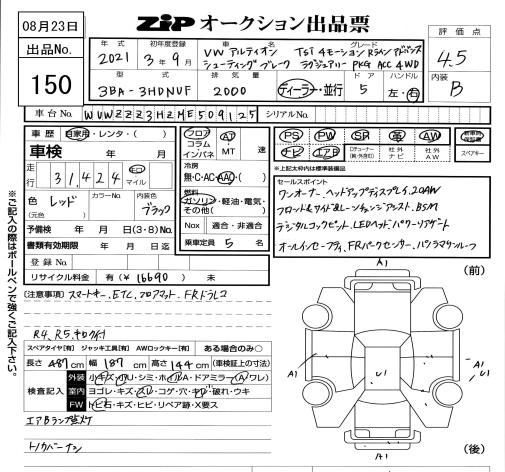 08月23日
ZIP オークション出品票
出品No.
150
年式 初年度登録 車名 グレード
2021 3年9月 VW アルティオン TSI 4モーション Rライン アドバンス
シューティングブレーク ラグジュアリー PKG ACC 4WD
型式 排気量 ドア ハンドル
3BA-3HDNUF 2000 ディーラー・並行 5 左・右
評価点
4.5
内装
B
車台No. WVWZZZ3HZME509125 シリアルNo.
車歴 自家用・レンタ・( )
車検 年 月
走行 31,424 km マイル
色 レッド カラーNo. 内装色 ブラック
(元色)
予備検 年 月 日(3・8)No.
書類有効期限 年 月 日迄
登録No.
リサイクル料金 有(¥16690) 未
フロア コラム インパネ AT・MT 速
冷房
無・C・AC・AAC・( )
燃料
ガソリン・軽油・電気・その他( )
Nox 適合・非適合
乗車定員 5 名
PS PW SR 革 AW 新車時保証書
ナビ エアB TVチューナー(純・外・自) 社外ナビ 社外AW スペアキー
*上記太枠内は標準装備品
セールスポイント
ワンオーナー、ヘッドアップディスプレイ、20AW
フロント&サイド&レーンチェンジアシスト、BSM
デジタルコックピット、LEDヘッド、パワーリアゲート
オールインセーフティ、FRパークセンサー、パノラマサンルーフ
※ご記入の際はボールペンで強くご記入下さい。
[注意事項] スマートキー、ETC、フロアマット、FRドラレコ
R4、R5、キロク付
スペアタイヤ[有] ジャッキ工具[有] AWロックキー[有] ある場合のみ○
長さ 487cm 幅 187cm 高さ 144cm (車検証上の寸法)
検査記入
外装 小キズ・小U・シミ・ホイルA・ドアミラー(A ワレ)
室内 ヨゴレ・キズ・スレ・コゲ・穴・キレ・破れ・ウキ
FW トビ石・キズ・ヒビ・リペア跡・X要ス
エアBランプ点灯
トノカバーナシ
(前)
A1
A1
A1
U1
U1
A1
(後)